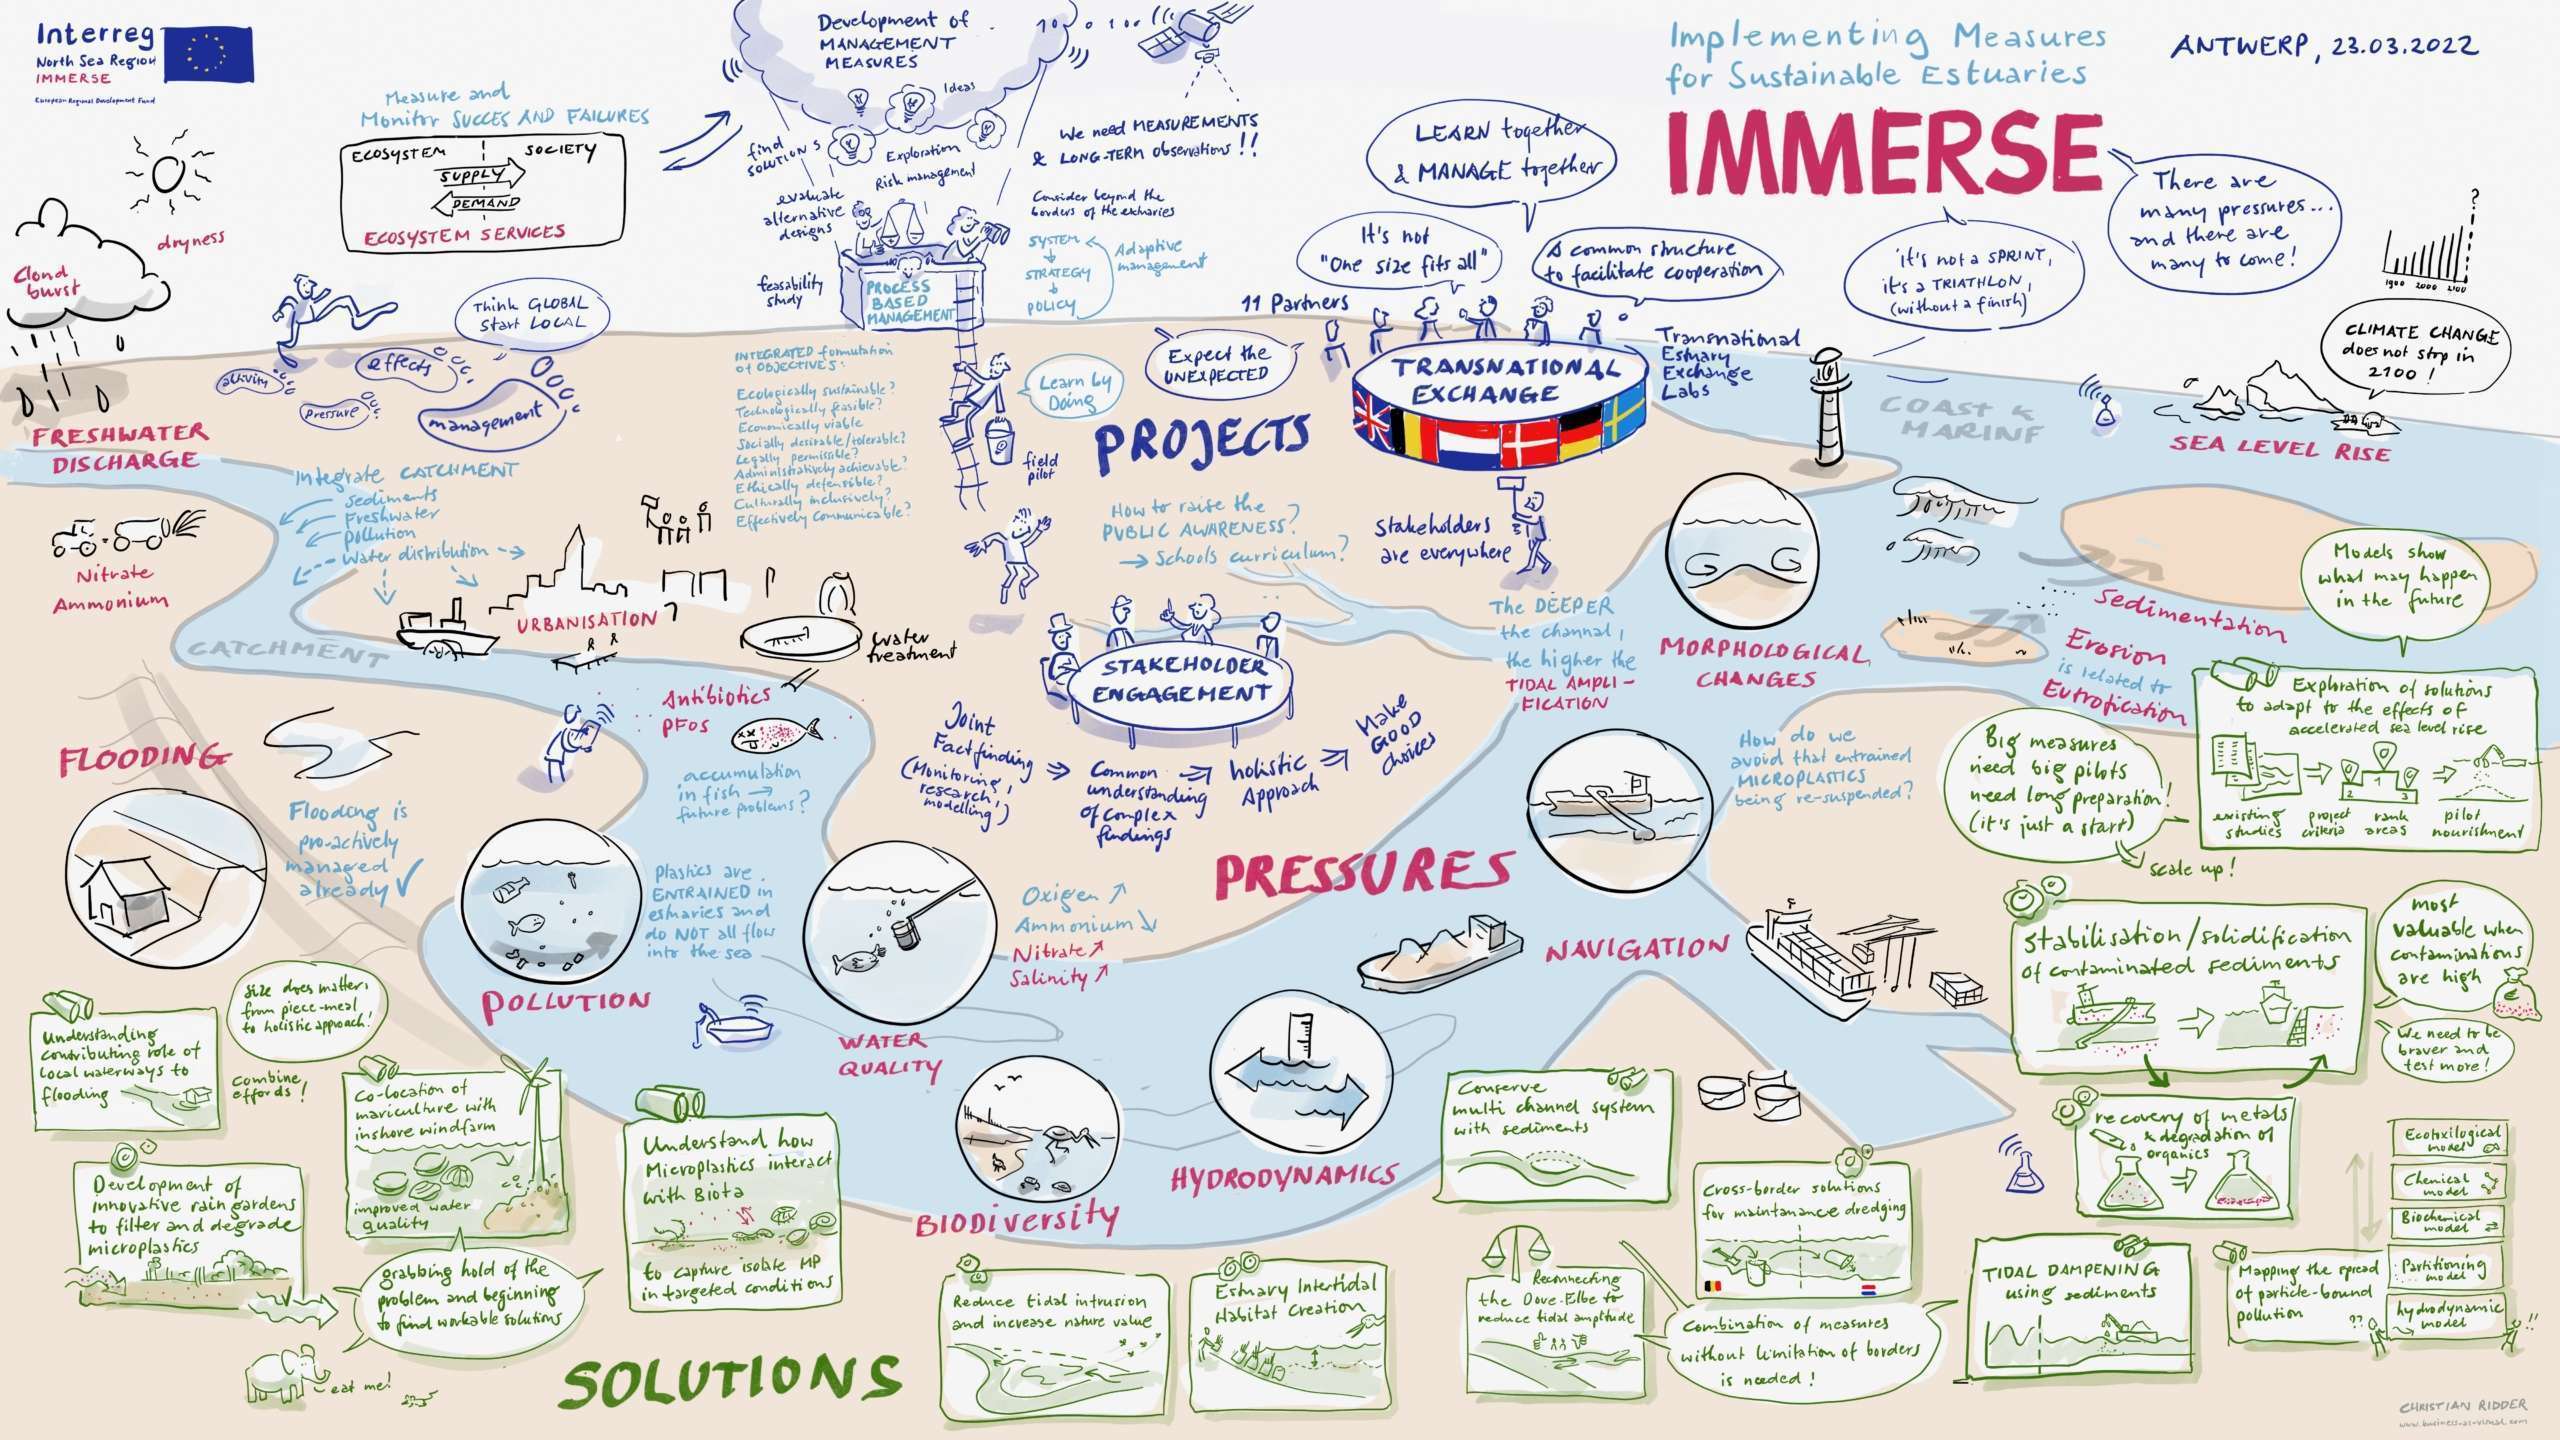 Interreg
North Sea Region
IMMERSE
European Regional Development Fund
Measure and
Monitor SUCCES AND FAILURES
ECOSYSTEM
SOCIETY
SUPPLY
DEMAND
ECOSYSTEM SERVICES
dryness
Cloud
burst
Development of
MANAGEMENT
MEASURES
Ideas
find
SOLUTIONS
Exploration
Risk management
evaluate
alternative
designs
feasability
study
PROCESS
BASED
MANAGEMENT
We need MEASUREMENTS
& LONG-TERM observations !!
Consider beyond the
borders of the estuaries
SYSTEM
STRATEGY
POLICY
Adaptive
management
Implementing Measures
for Sustainable Estuaries
IMMERSE
ANTWERP, 23.03.2022
LEARN together
& MANAGE together
It's not
"One size fits all"
A common structure
to facilitate cooperation
11 Partners
Expect the
UNEXPECTED
TRANSNATIONAL
EXCHANGE
Transnational
Estuary
Exchange
Labs
it's not a SPRINT,
it's a TRIATHLON,
(without a finish)
There are
many pressures...
and there are
many to come!
?
1900 2000 2100
CLIMATE CHANGE
does not stop in
2100 !
COAST &
MARINE
SEA LEVEL RISE
Think GLOBAL
start LOCAL
activity
effects
Pressure
management
FRESHWATER
DISCHARGE
Integrate CATCHMENT
Sediments
Freshwater
pollution
Water distribution
Nitrate
Ammonium
CATCHMENT
URBANISATION
water
treatment
INTEGRATED formulation
of OBJECTIVES:
Ecologically sustainable?
Technologically feasible?
Economically viable
Socially desirable/tolerable?
Legally permissible?
Administratively achievable?
Ethically defensible?
Culturally inclusively?
Effectively Communicable?
Learn by
Doing
field
pilot
PROJECTS
How to raise the
PUBLIC AWARENESS?
→ Schools curriculum?
Stakeholders
are everywhere
STAKEHOLDER
ENGAGEMENT
Joint
Factfinding
(Monitoring,
research,
modelling)
Common
understanding
of complex
findings
holistic
Approach
Make
GOOD
choices
The DEEPER
the channel,
the higher the
TIDAL AMPLI-
FICATION
MORPHOLOGICAL
CHANGES
Sedimentation
Erosion
is related to
Eutrofication
Models show
what may happen
in the future
Exploration of solutions
to adapt to the effects of
accelerated sea level rise
2 1 3
existing
studies
project
criteria
rank
areas
pilot
nourishment
Big measures
need big pilots
need long preparation!
(it's just a start)
scale up!
How do we
avoid that entrained
MICROPLASTICS
being re-suspended?
FLOODING
Flooding is
pro-actively
managed
already ✓
Antibiotics
PFOS
accumulation
in fish →
future problems?
Plastics are
ENTRAINED in
estuaries and
do NOT all flow
into the sea
POLLUTION
Oxigen ↗
Ammonium ↘
Nitrate ↗
Salinity ↗
WATER
QUALITY
PRESSURES
NAVIGATION
BIODiversity
HYDRODYNAMICS
Stabilisation/solidification
of contaminated sediments
most
valuable when
contaminations
are high
€
We need to be
braver and
test more!
recovery of metals
& degradation of
organics
Ecotoxilogical
model
Chemical
model
Biochemical
model
Partitioning
model
hydrodynamic
model
Mapping the spread
of particle-bound
pollution
??
!!
TIDAL DAMPENING
using sediments
Conserve
multi channel system
with sediments
Cross-border solutions
for maintanance dredging
Reconnecting
the Dove-Elbe to
reduce tidal amplitude
Combination of measures
without limitation of borders
is needed!
Understanding
contributing role of
local waterways to
flooding
Size does matter,
from piece-meal
to holistic approach!
Combine
effords!
Co-location of
mariculture with
inshore windfarm
improved water
quality
Development of
innovative rain gardens
to filter and degrade
microplastics
grabbing hold of the
problem and beginning
to find workable solutions
eat me!
Understand how
Microplastics interact
with Biota
to capture isolate MP
in targeted conditions
SOLUTIONS
Reduce tidal intrusion
and increase nature value
Estuary Intertidal
Habitat Creation
CHRISTIAN RIDDER
www.business-as-visual.com